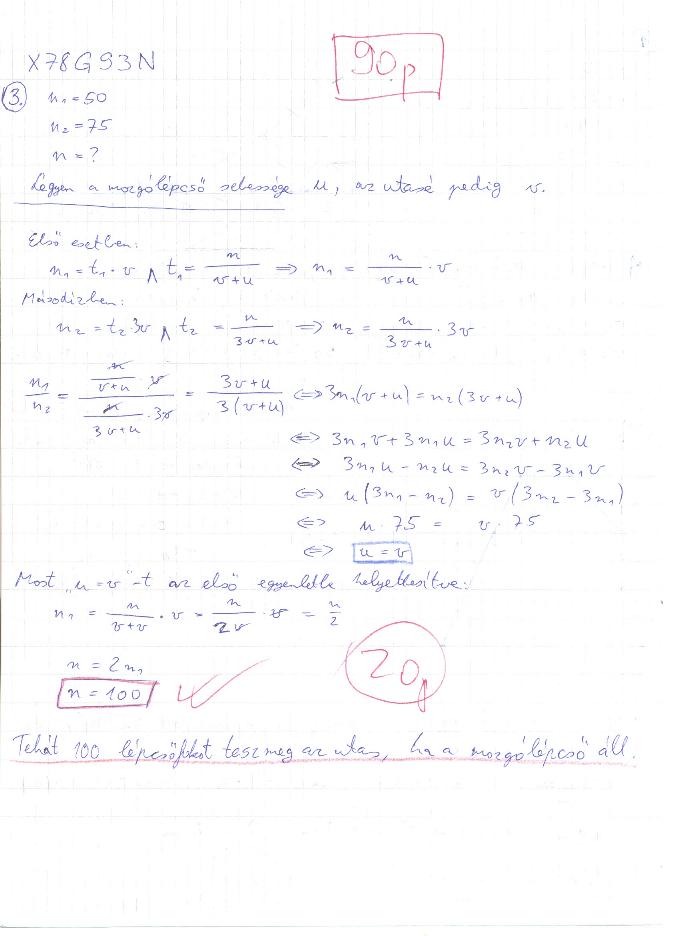 X78G93N
90p
3.
n₁ = 50
n₂ = 75
n = ?
Legyen a mozgólépcső sebessége u, az utasé pedig v.
Első esetben:
n₁ = t₁ · v ∧ t₁ = n/(v+u) ⇒ n₁ = n/(v+u) · v
Másodízben:
n₂ = t₂ · 3v ∧ t₂ = n/(3v+u) ⇒ n₂ = n/(3v+u) · 3v
n₁/n₂ = (n/(v+u) · v)/(n/(3v+u) · 3v) = (3v+u)/(3(v+u)) ⇔ 3n₁(v+u) = n₂(3v+u)
⇔ 3n₁v + 3n₁u = 3n₂v + n₂u
⇔ 3n₁u − n₂u = 3n₂v − 3n₁v
⇔ u(3n₁ − n₂) = v(3n₂ − 3n₁)
⇔ u · 75 = v · 75
⇔ u = v
Most „u = v"-t az első egyenletbe helyettesítve:
n₁ = n/(v+v) · v = n/(2v) · v = n/2
n = 2n₁
20p
n = 100
Tehát 100 lépcsőfokot tesz meg az utas, ha a mozgólépcső áll.